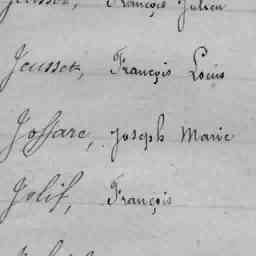 François Julien
Jeusset, François Louis
Jossare, Joseph Marie
Jolif, François